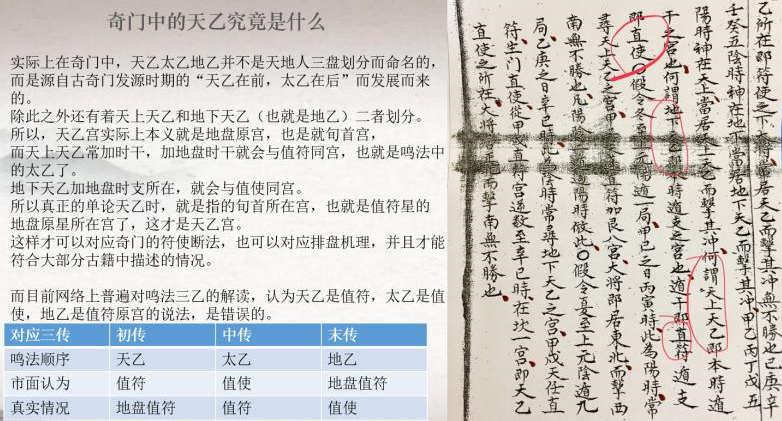 奇门中的天乙究竟是什么
实际上在奇门中，天乙太乙地乙并不是天地人三盘划分而命名的，
而是源自古奇门发源时期的“天乙在前，太乙在后”而发展而来
的。
除此之外还有着天上天乙和地下天乙（也就是地乙）二者划分。
所以，天乙宫实际上本义就是地盘原宫，也就是就旬首宫，
而天上天乙常加时干，加地盘时干就会与值符同宫，也就是鸣法中
的太乙了。
地下天乙加地盘时支所在，就会与值使同宫。
所以真正的单论天乙时，就是指的旬首所在宫，也就是值符星的
地盘原星所在宫了，这才是天乙宫。
这样才可以对应奇门的符使断法，也可以对应排盘机理，并且才能
符合大部分古籍中描述的情况。
而目前网络上普遍对鸣法三乙的解读，认为天乙是值符，太乙是值
使，地乙是值符原宫的说法，是错误的。
对应三传 初传 中传 末传
鸣法顺序 天乙 太乙 地乙
市面认为 值符 值使 地盘值符
真实情况 地盘值符 值符 值使
乙所在即符使之下大將當居天乙而擊其冲無不勝也己庚辛
壬癸五陰時神在地下當居地下天乙而擊其冲甲乙丙丁戊五
陽時神在天上當居天上天乙而擊其冲何謂天上天乙即本時遁
干之宮也何謂地下天乙即時遁支之宮也遁干即直符遁支
即直使〇假令冬至上元陽遁一局甲己之日丙寅時此為陽時常
尋天上天乙之宮甲 直符加艮八宮大將即居東北而擊西
南無不勝也凡陽 遁陽時倣此〇假令夏至上元陰遁九
局乙庚之日辛巳時此為陰時常尋地下天乙之宮甲戌天任直
符生門直使從甲戌直符宮逆數至辛巳時在坎一宮即天乙
直使之所在大將 而擊南無不勝也